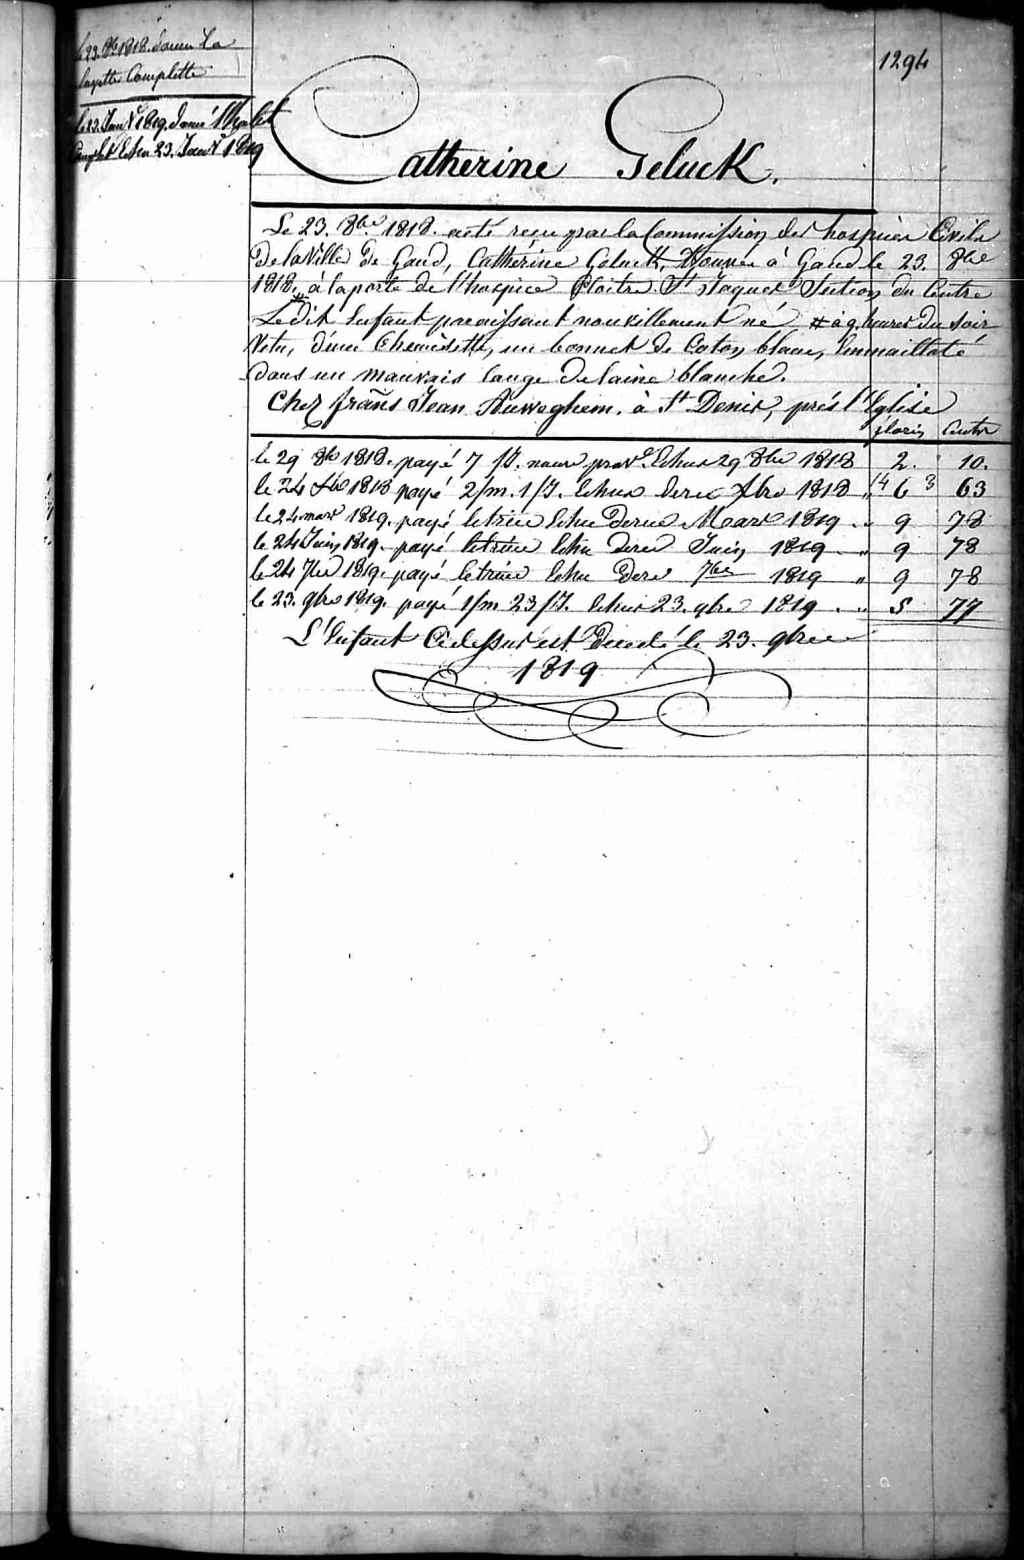 1294
le 23. 8bre 1818. donné La
layette Complette
le 23. Janvr 1819. donné
Complet Echu 23. Janvr 1819
Catherine Geluck.
Le 23. 8bre 1818. a été reçu par la Commission des hospices Civils
de la Ville de Gand, Catherine Geluck, trouvée à Gand le 23. 8bre
1818, # à la porte de l'hospice St Jaques Section du Centre
Ledit Enfant paroissant nouvellement né # à 9 heures du soir
Vetu, d'une Chemisette, un bonnet de Coton blanc, Emmailloté
dans un mauvais lange de laine blanche.
Chez frans Jean Auweghem. à St Denis, près l'Eglise
florin Cents
le 29 8bre 1818. payé 7 js. Echus 29 8bre 1818 2. 10.
le 24 Xbre 1818 payé 2/m. 1/J. Echus Xbre 1818 " 6 63
le 24 mars 1819. payé letrime Echu Mars 1819 " 9 78
le 24 Juin 1819. payé letrime Echu Juin 1819 " 9 78
le 24 7bre 1819. payé letrime Echu 7bre 1819 " 9 78
le 23. 9bre 1819. payé 1/m 23/J. Echus 23. 9bre 1819 " 5 77
L'Enfant Cidessus est décédé le 23. 9bre
1819